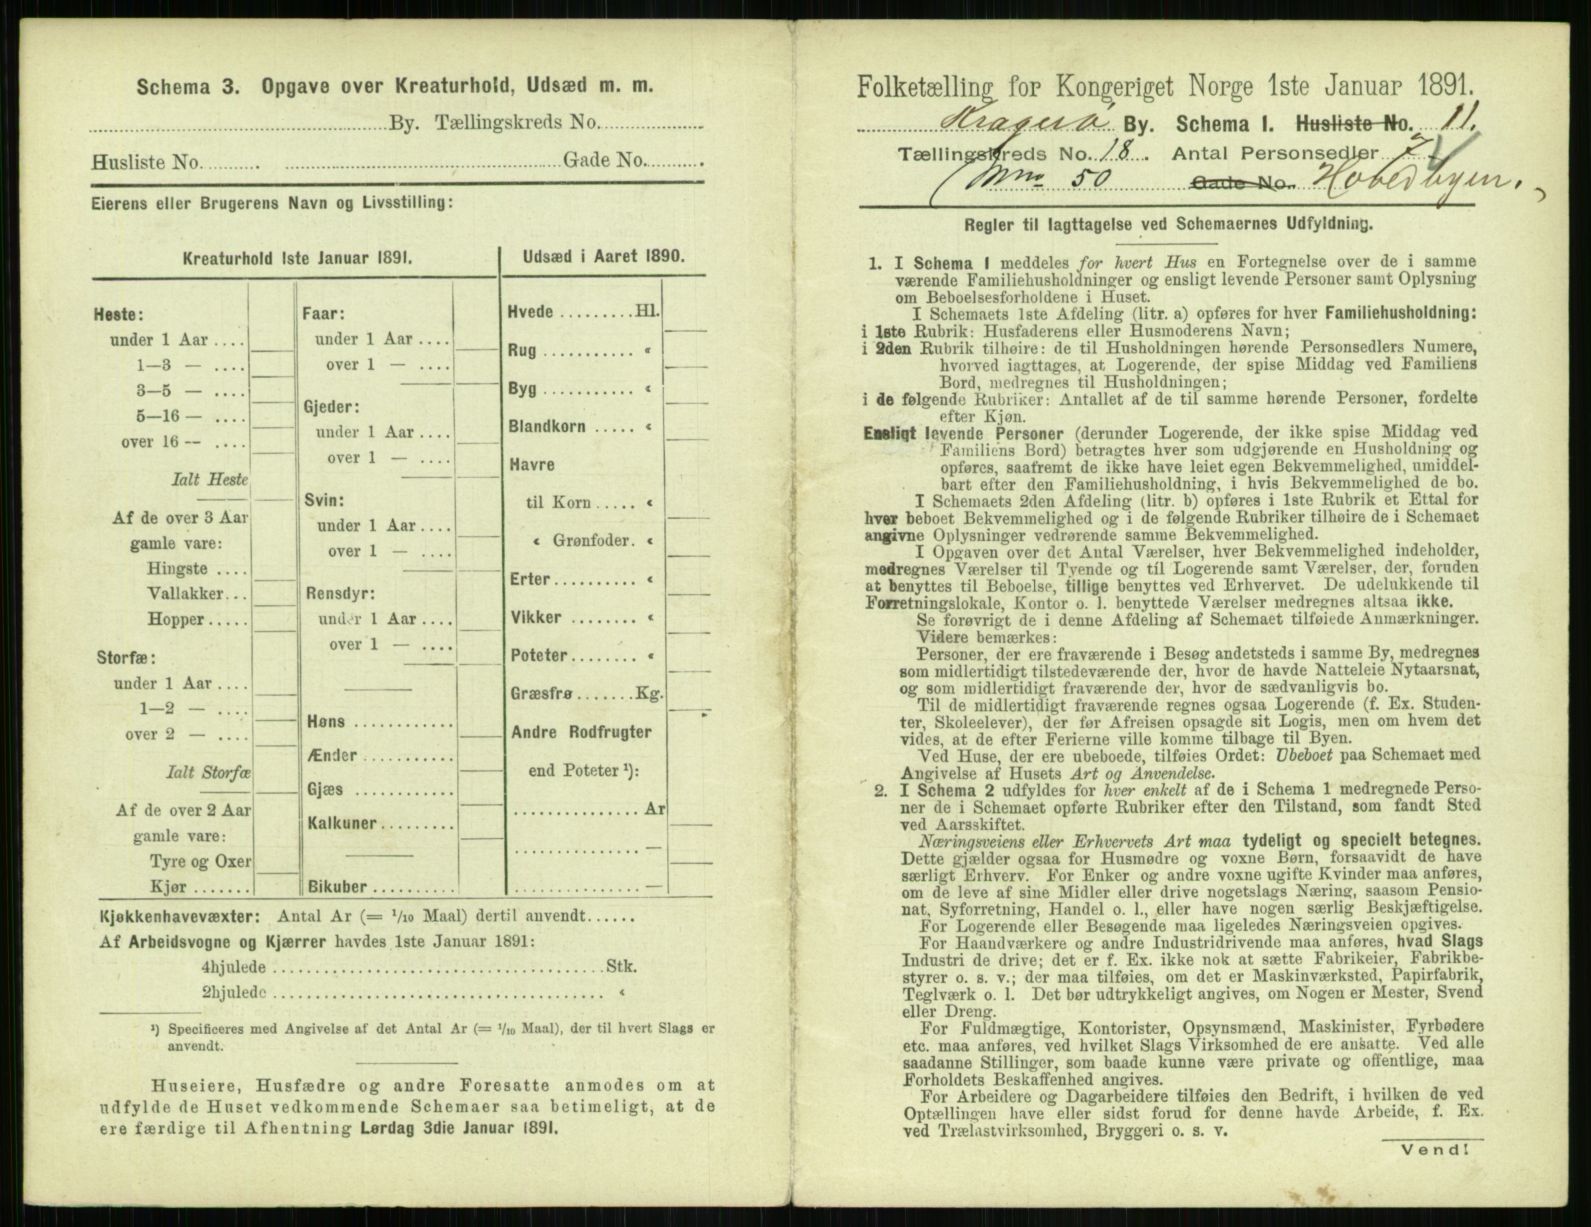 Schema 3. Opgave over Kreaturhold, Udsæd m. m.
By. Tællingskreds No.
Husliste No. Gade No.
Eierens eller Brugerens Navn og Livsstilling:
Kreaturhold 1ste Januar 1891.
Heste:
under 1 Aar ....
1—3 — ....
3—5 — ....
5—16 — ....
over 16 — ....
Ialt Heste
Af de over 3 Aar
gamle vare:
Hingste ....
Vallakker...
Hopper .....
Storfæ:
under 1 Aar ....
1—2 — ....
over 2 — ....
Ialt Storfæ
Af de over 2 Aar
gamle vare:
Tyre og Oxer
Kjør .......
Faar:
under 1 Aar ....
over 1 — ....
Gjeder:
under 1 Aar ....
over 1 — ....
Svin:
under 1 Aar ....
over 1 — ....
Rensdyr:
under 1 Aar ....
over 1 — ....
Høns ............
Ænder ...........
Gjæs ............
Kalkuner.........
Bikuber ..........
Udsæd i Aaret 1890.
Hvede .........Hl.
Rug ........... «
Byg ........... «
Blandkorn ..... «
Havre
til Korn ..... «
« Grønfoder. «
Erter .......... «
Vikker ........ «
Poteter........ «
Græsfrø .......Kg.
Andre Rodfrugter
end Poteter ¹):
............... Ar
............... —
............... —
Kjøkkenhavevæxter: Antal Ar (= 1/10 Maal) dertil anvendt......
Af Arbeidsvogne og Kjærrer havdes 1ste Januar 1891:
4hjulede ........................................Stk.
2hjulede ........................................ «
¹) Specificeres med Angivelse af det Antal Ar (= 1/10 Maal), der til hvert Slags er
anvendt.
Huseiere, Husfædre og andre Foresatte anmodes om at
udfylde de Huset vedkommende Schemaer saa betimeligt, at de
ere færdige til Afhentning Lørdag 3die Januar 1891.
Folketælling for Kongeriget Norge 1ste Januar 1891.
Kragerø By. Schema 1. Husliste No. 11.
Tællingskreds No. 18. Antal Personsedler 7
50 Gade No.
Regler til Iagttagelse ved Schemaernes Udfyldning.
1. I Schema 1 meddeles for hvert Hus en Fortegnelse over de i samme
værende Familiehusholdninger og ensligt levende Personer samt Oplysning
om Beboelsesforholdene i Huset.
I Schemaets 1ste Afdeling (litr. a) opføres for hver Familiehusholdning:
i 1ste Rubrik: Husfaderens eller Husmoderens Navn;
i 2den Rubrik tilhøire: de til Husholdningen hørende Personsedlers Numere,
hvorved iagttages, at Logerende, der spise Middag ved Familiens
Bord, medregnes til Husholdningen;
i de følgende Rubriker: Antallet af de til samme hørende Personer, fordelte
efter Kjøn.
Ensligt levende Personer (derunder Logerende, der ikke spise Middag ved
Familiens Bord) betragtes hver som udgjørende en Husholdning og
opføres, saafremt de ikke have leiet egen Bekvemmelighed, umiddel-
bart efter den Familiehusholdning, i hvis Bekvemmelighed de bo.
I Schemaets 2den Afdeling (litr. b) opføres i 1ste Rubrik et Ettal for
hver beboet Bekvemmelighed og i de følgende Rubriker tilhøire de i Schemaet
angivne Oplysninger vedrørende samme Bekvemmelighed.
I Opgaven over det Antal Værelser, hver Bekvemmelighed indeholder,
medregnes Værelser til Tyende og til Logerende samt Værelser, der, foruden
at benyttes til Beboelse, tillige benyttes ved Erhvervet. De udelukkende til
Forretningslokale, Kontor o. l. benyttede Værelser medregnes altsaa ikke.
Se forøvrigt de i denne Afdeling af Schemaet tilføiede Anmærkninger.
Videre bemærkes:
Personer, der ere fraværende i Besøg andetsteds i samme By, medregnes
som midlertidigt tilstedeværende der, hvor de havde Natteleie Nytaarsnat,
og som midlertidigt fraværende der, hvor de sædvanligvis bo.
Til de midlertidigt fraværende regnes ogsaa Logerende (f. Ex. Studen-
ter, Skoleelever), der før Afreisen opsagde sit Logis, men om hvem det
vides, at de efter Ferierne ville komme tilbage til Byen.
Ved Huse, der ere ubeboede, tilføies Ordet: Ubeboet paa Schemaet med
Angivelse af Husets Art og Anvendelse.
2. I Schema 2 udfyldes for hver enkelt af de i Schema 1 medregnede Perso-
ner de i Schemaet opførte Rubriker efter den Tilstand, som fandt Sted
ved Aarsskiftet.
Næringsveiens eller Erhvervets Art maa tydeligt og specielt betegnes.
Dette gjælder ogsaa for Husmødre og voxne Børn, forsaavidt de have
særligt Erhverv. For Enker og andre voxne ugifte Kvinder maa anføres,
om de leve af sine Midler eller drive nogetslags Næring, saasom Pensio-
nat, Syforretning, Handel o. l., eller have nogen særlig Beskjæftigelse.
For Logerende eller Besøgende maa ligeledes Næringsveien opgives.
For Haandværkere og andre Industridrivende maa anføres, hvad Slags
Industri de drive; det er f. Ex. ikke nok at sætte Fabrikeier, Fabrikbe-
styrer o. s. v.; der maa tilføies, om det er Maskinværksted, Papirfabrik,
Teglværk o. l. Det bør udtrykkeligt angives, om Nogen er Mester, Svend
eller Dreng.
For Fuldmægtige, Kontorister, Opsynsmænd, Maskinister, Fyrbødere
etc. maa anføres, ved hvilket Slags Virksomhed de ere ansatte. Ved alle
saadanne Stillinger, som baade kunne være private og offentlige, maa
Forholdets Beskaffenhed angives.
For Arbeidere og Dagarbeidere tilføies den Bedrift, i hvilken de ved
Optællingen have eller sidst forud for denne havde Arbeide, f. Ex.
ved Trælastvirksomhed, Bryggeri o. s. v.
Vend!